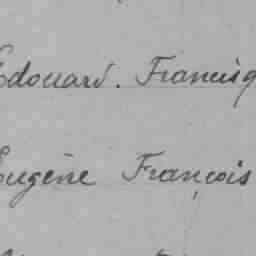 Edouard. Francisq
Eugène François